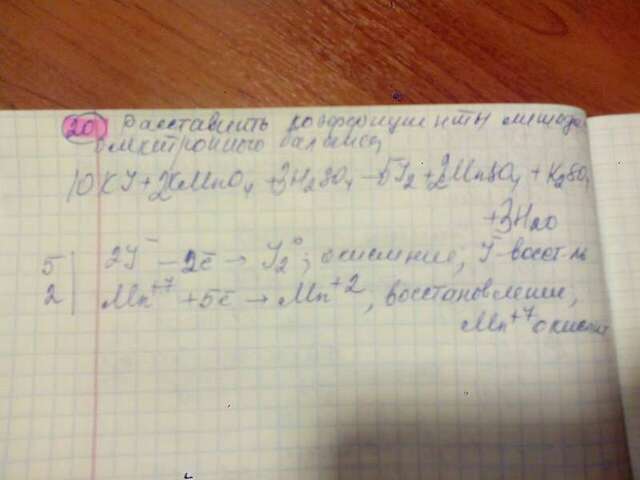 20 Расставить коэффициенты методом
электронного баланса
10KJ + 2KMnO4 + 3H2SO4 → 5J2 + 2MnSO4 + K2SO4
+3H2O
5 | 2J⁻ - 2ē → J2⁰; окисление, J⁻ восст-ль
2 | Mn⁺⁷ + 5ē → Mn⁺², восстановление,
Mn⁺⁷ окисли